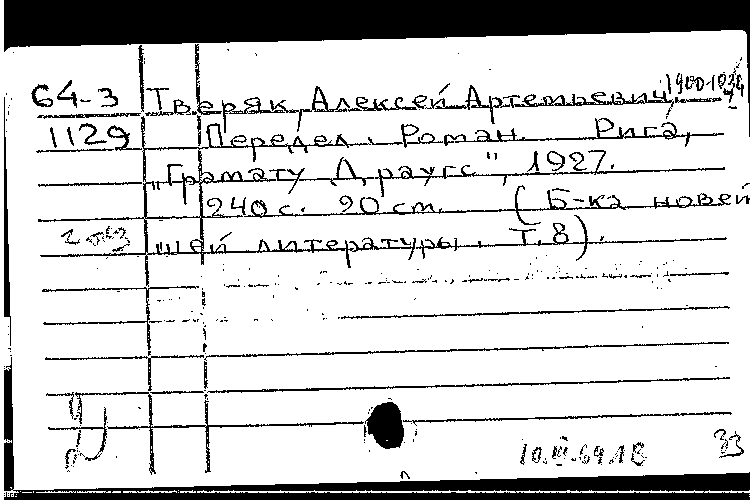 64-3 Тверяк, Алексей Артемьевич,
1129 Передел. Роман. Рига,
„Грамату Драугс", 1927.
240 с. 20 cm. (Б-ка новей
шей литературы. Т. 8).
10.III.64 1В 33